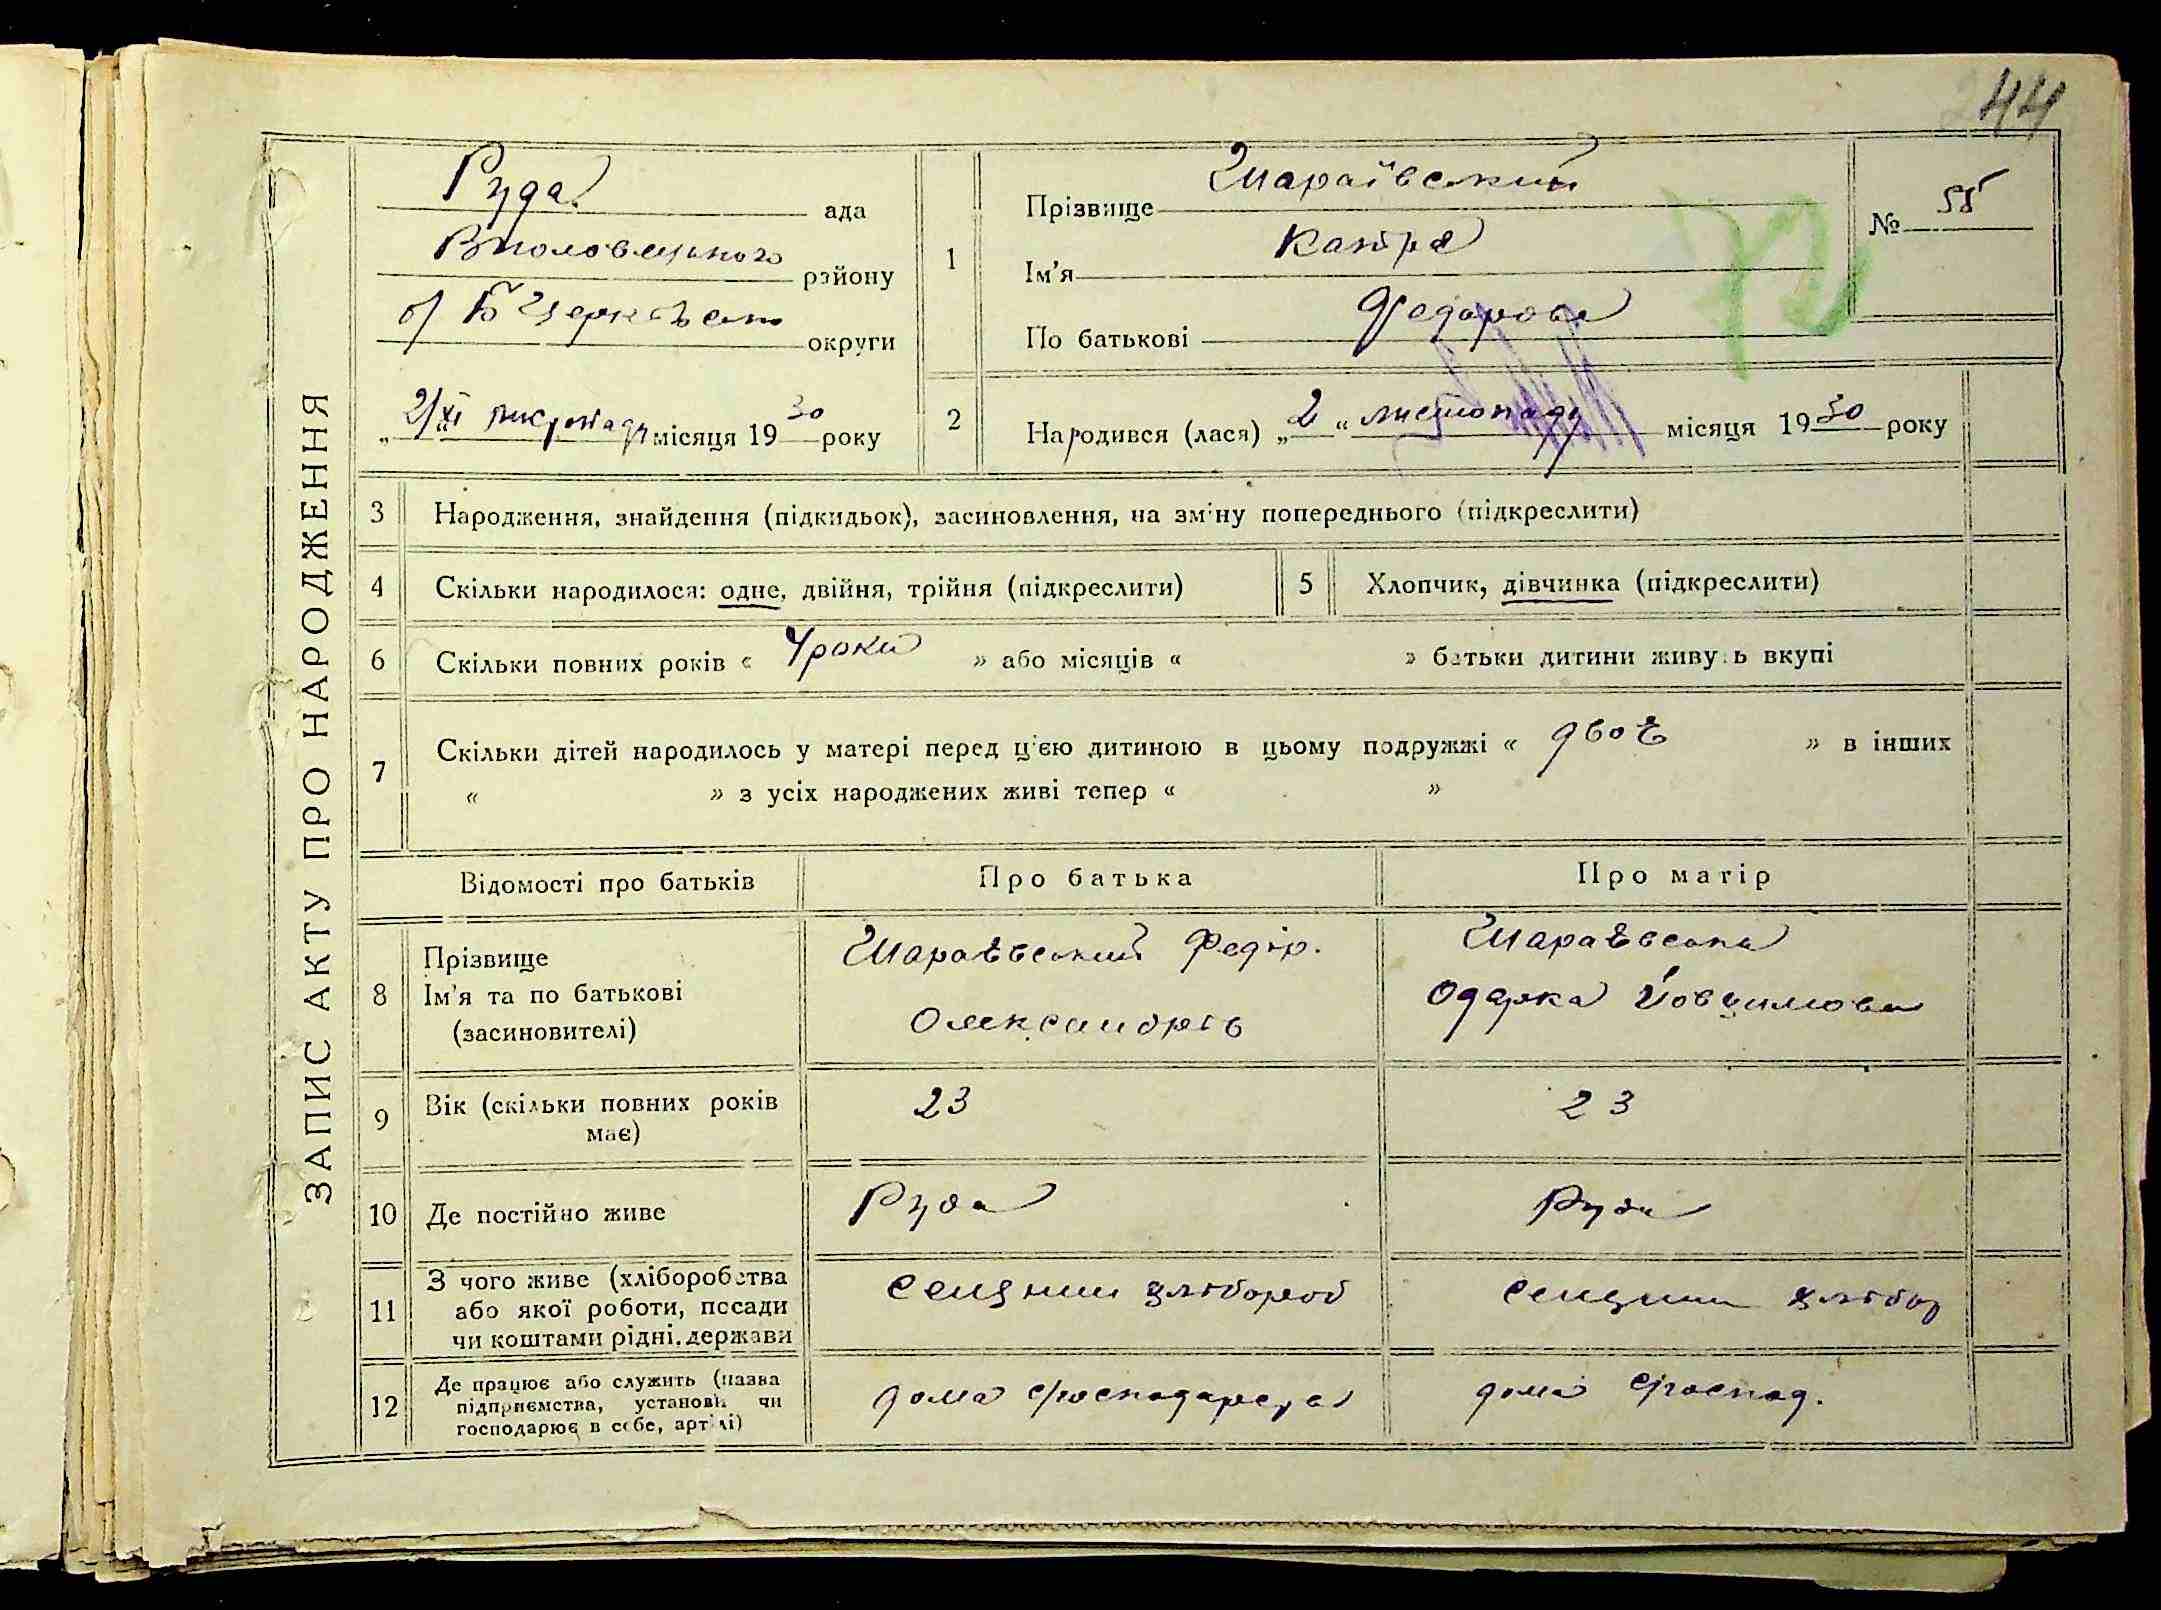 44
ЗАПИС АКТУ ПРО НАРОДЖЕННЯ
Руда ада
району
б/ Б Церківсько округи
„ 2/XI листопаду місяця 19 30 року
1 Прізвище Шараївський
Ім'я
По батькові Федорова
№ 55
2 Народився (лася) „ 2 “ листопаду місяця 19 30 року
3 Народження, знайдення (підкидьок), засиновлення, на зміну попереднього (підкреслити)
4 Скільки народилося: одне, двійня, трійня (підкреслити)
5 Хлопчик, дівчинка (підкреслити)
6 Скільки повних років « 4 роки » або місяців « » батьки дитини живуть вкупі
7 Скільки дітей народилось у матері перед цією дитиною в цьому подружжі « двоє » в інших
« » з усіх народжених живі тепер « »
Відомості про батьків Про батька Про матір
8 Прізвище
Ім'я та по батькові
(засиновителі)
Шараєвский Федір.
Олександрів
Шараєвська
Одарка Йовхимова
9 Вік (скільки повних років
має)
23 23
10 Де постійно живе Руда Руда
11 З чого живе (хліборобства
або якої роботи, посади
чи коштами рідні, держави
хлібороб хлібор
12 Де працює або служить (назва
підприємства, установи чи
господарює в себе, артілі)
дома господарств
дома господ.